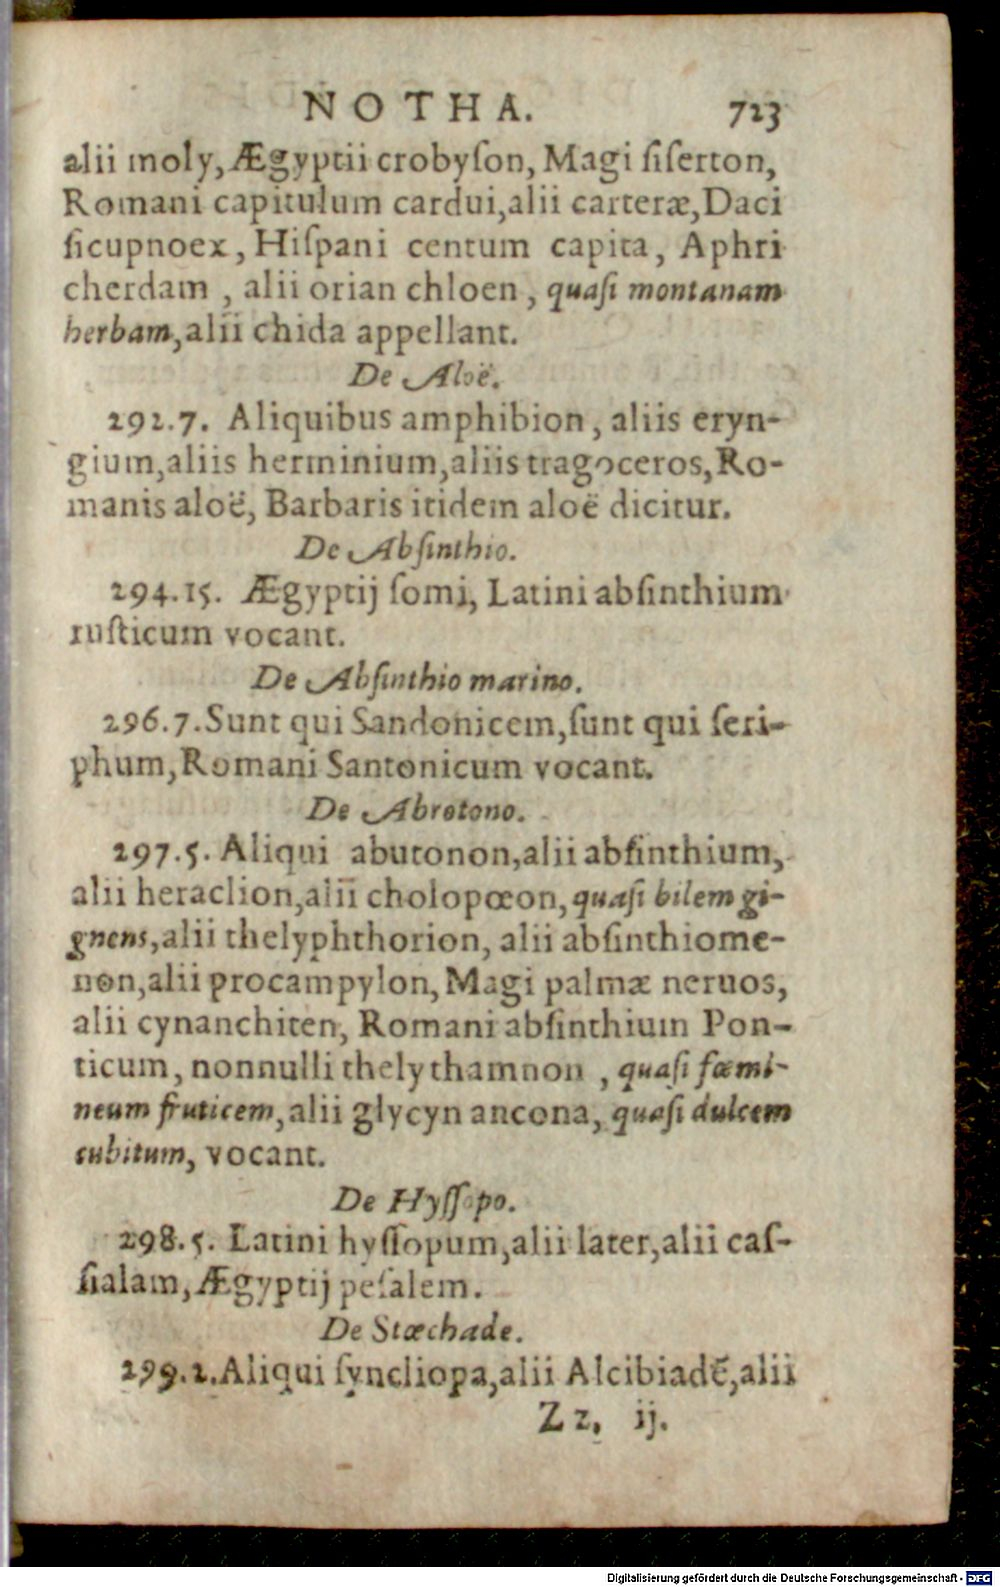 NOTHA. 723
alii moly, Ægyptii crobyſon, Magi ſiſerton,
Romani capitulum cardui, alii carteræ, Daci
ſicupnoex, Hiſpani centum capita, Aphri
cherdam, alii orian chloen, quaſi montanam
herbam, alii chida appellant.
De Aloë.
292.7. Aliquibus amphibion, aliis eryn-
gium, aliis herminium, aliis tragoceros, Ro-
manis aloë, Barbaris itidem aloë dicitur.
De Abſinthio.
294.15. Ægyptij ſomi, Latini abſinthium
ruſticum vocant.
De Abſinthio marino.
296.7. Sunt qui Sandonicem, ſunt qui ſeri-
phum, Romani Santonicum vocant.
De Abrotono.
297.5. Aliqui abutonon, alii abſinthium,
alii heraclion, alii cholopœon, quaſi bilem gi-
gnens, alii thelyphthorion, alii abſinthiome-
non, alii procampylon, Magi palmæ neruos,
alii cynanchiten, Romani abſinthium Pon-
ticum, nonnulli thelythamnon, quaſi fœmi-
neum fruticem, alii glycyn ancona, quaſi dulcem
cubitum, vocant.
De Hyſſopo.
298.5. Latini hyſſopum, alii later, alii caſ-
ſialam, Ægyptij peſalem.
De Stœchade.
299.2. Aliqui ſyncliopa, alii Alcibiadē, alii
Zz. ij.
Digitalisierung gefördert durch die Deutsche Forschungsgemeinschaft - DFG